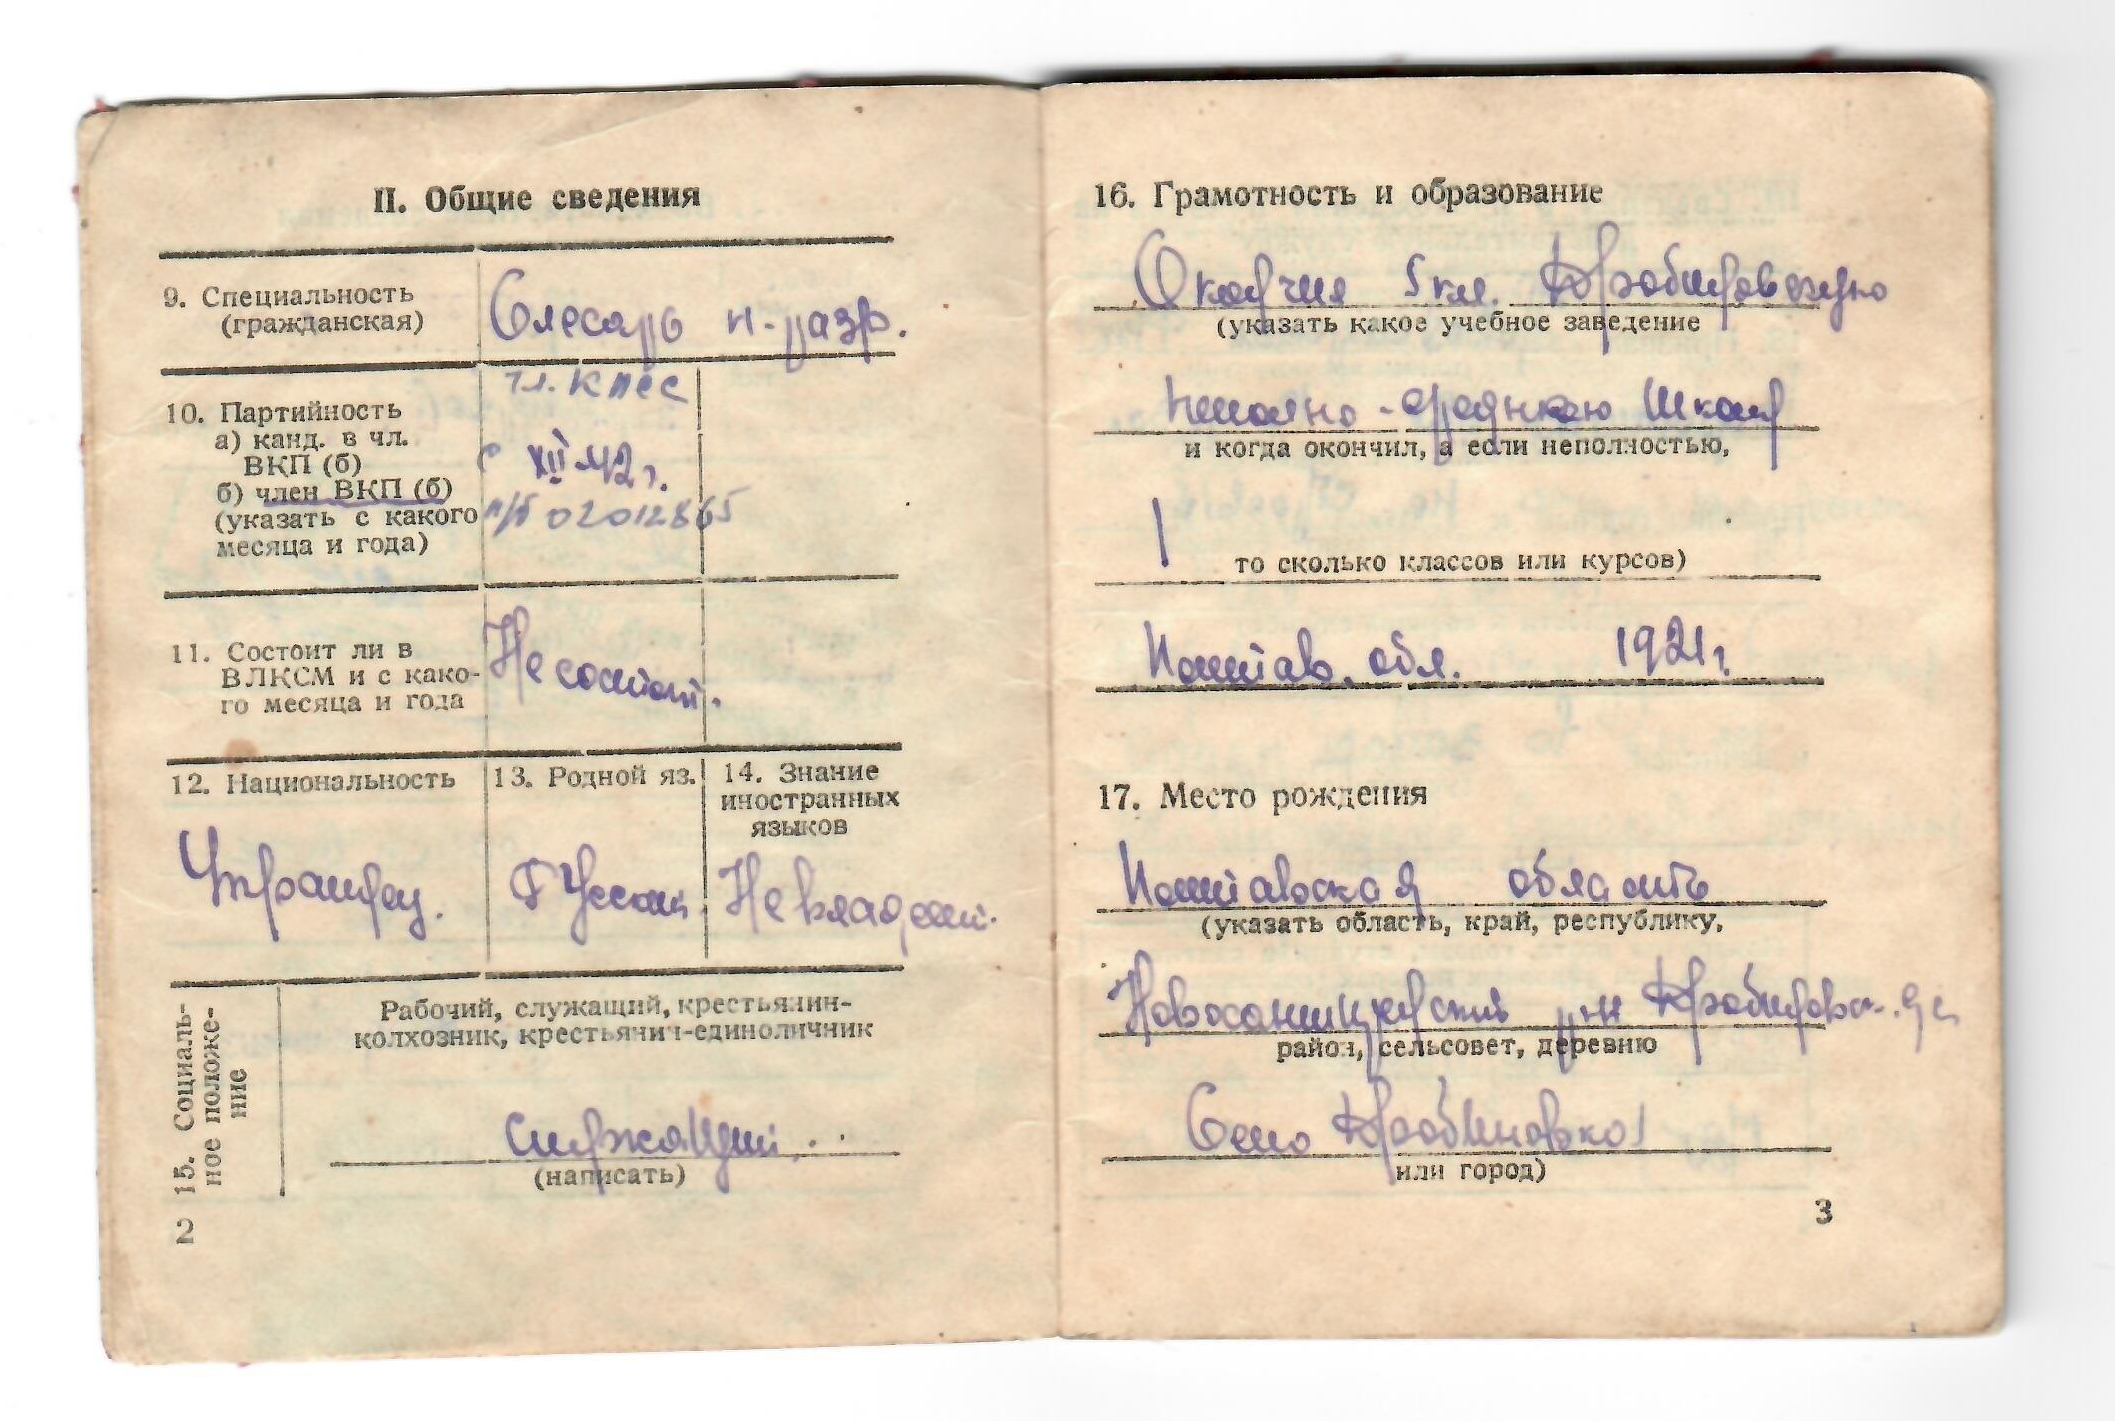 II. Общие сведения
9. Специальность
(гражданская)
Слесарь н-разр.
10. Партийность
а) канд. в чл.
ВКП (б)
б) член ВКП (б)
(указать с какого
месяца и года)
чл. КПСС
с XII 42 г.
п/б 02012865
11. Состоит ли в
ВЛКСМ и с како-
го месяца и года
Не состоит.
12. Национальность
13. Родной яз.
14. Знание
иностранных
языков
Украинец.
Русский
Не владеет.
15. Социаль-
ное положе-
ние
Рабочий, служащий, крестьянин-
колхозник, крестьянин-единоличник
Служащий
(написать)
2
16. Грамотность и образование
Окончил 5 кл.
(указать какое учебное заведение
среднюю школу
и когда окончил, а если неполностью,
то сколько классов или курсов)
Полтав. обл. 1921 г.
17. Место рождения
Полтавская область
(указать область, край, республику,
Новосанжарский р-н
район, сельсовет, деревню
Село
или город)
3